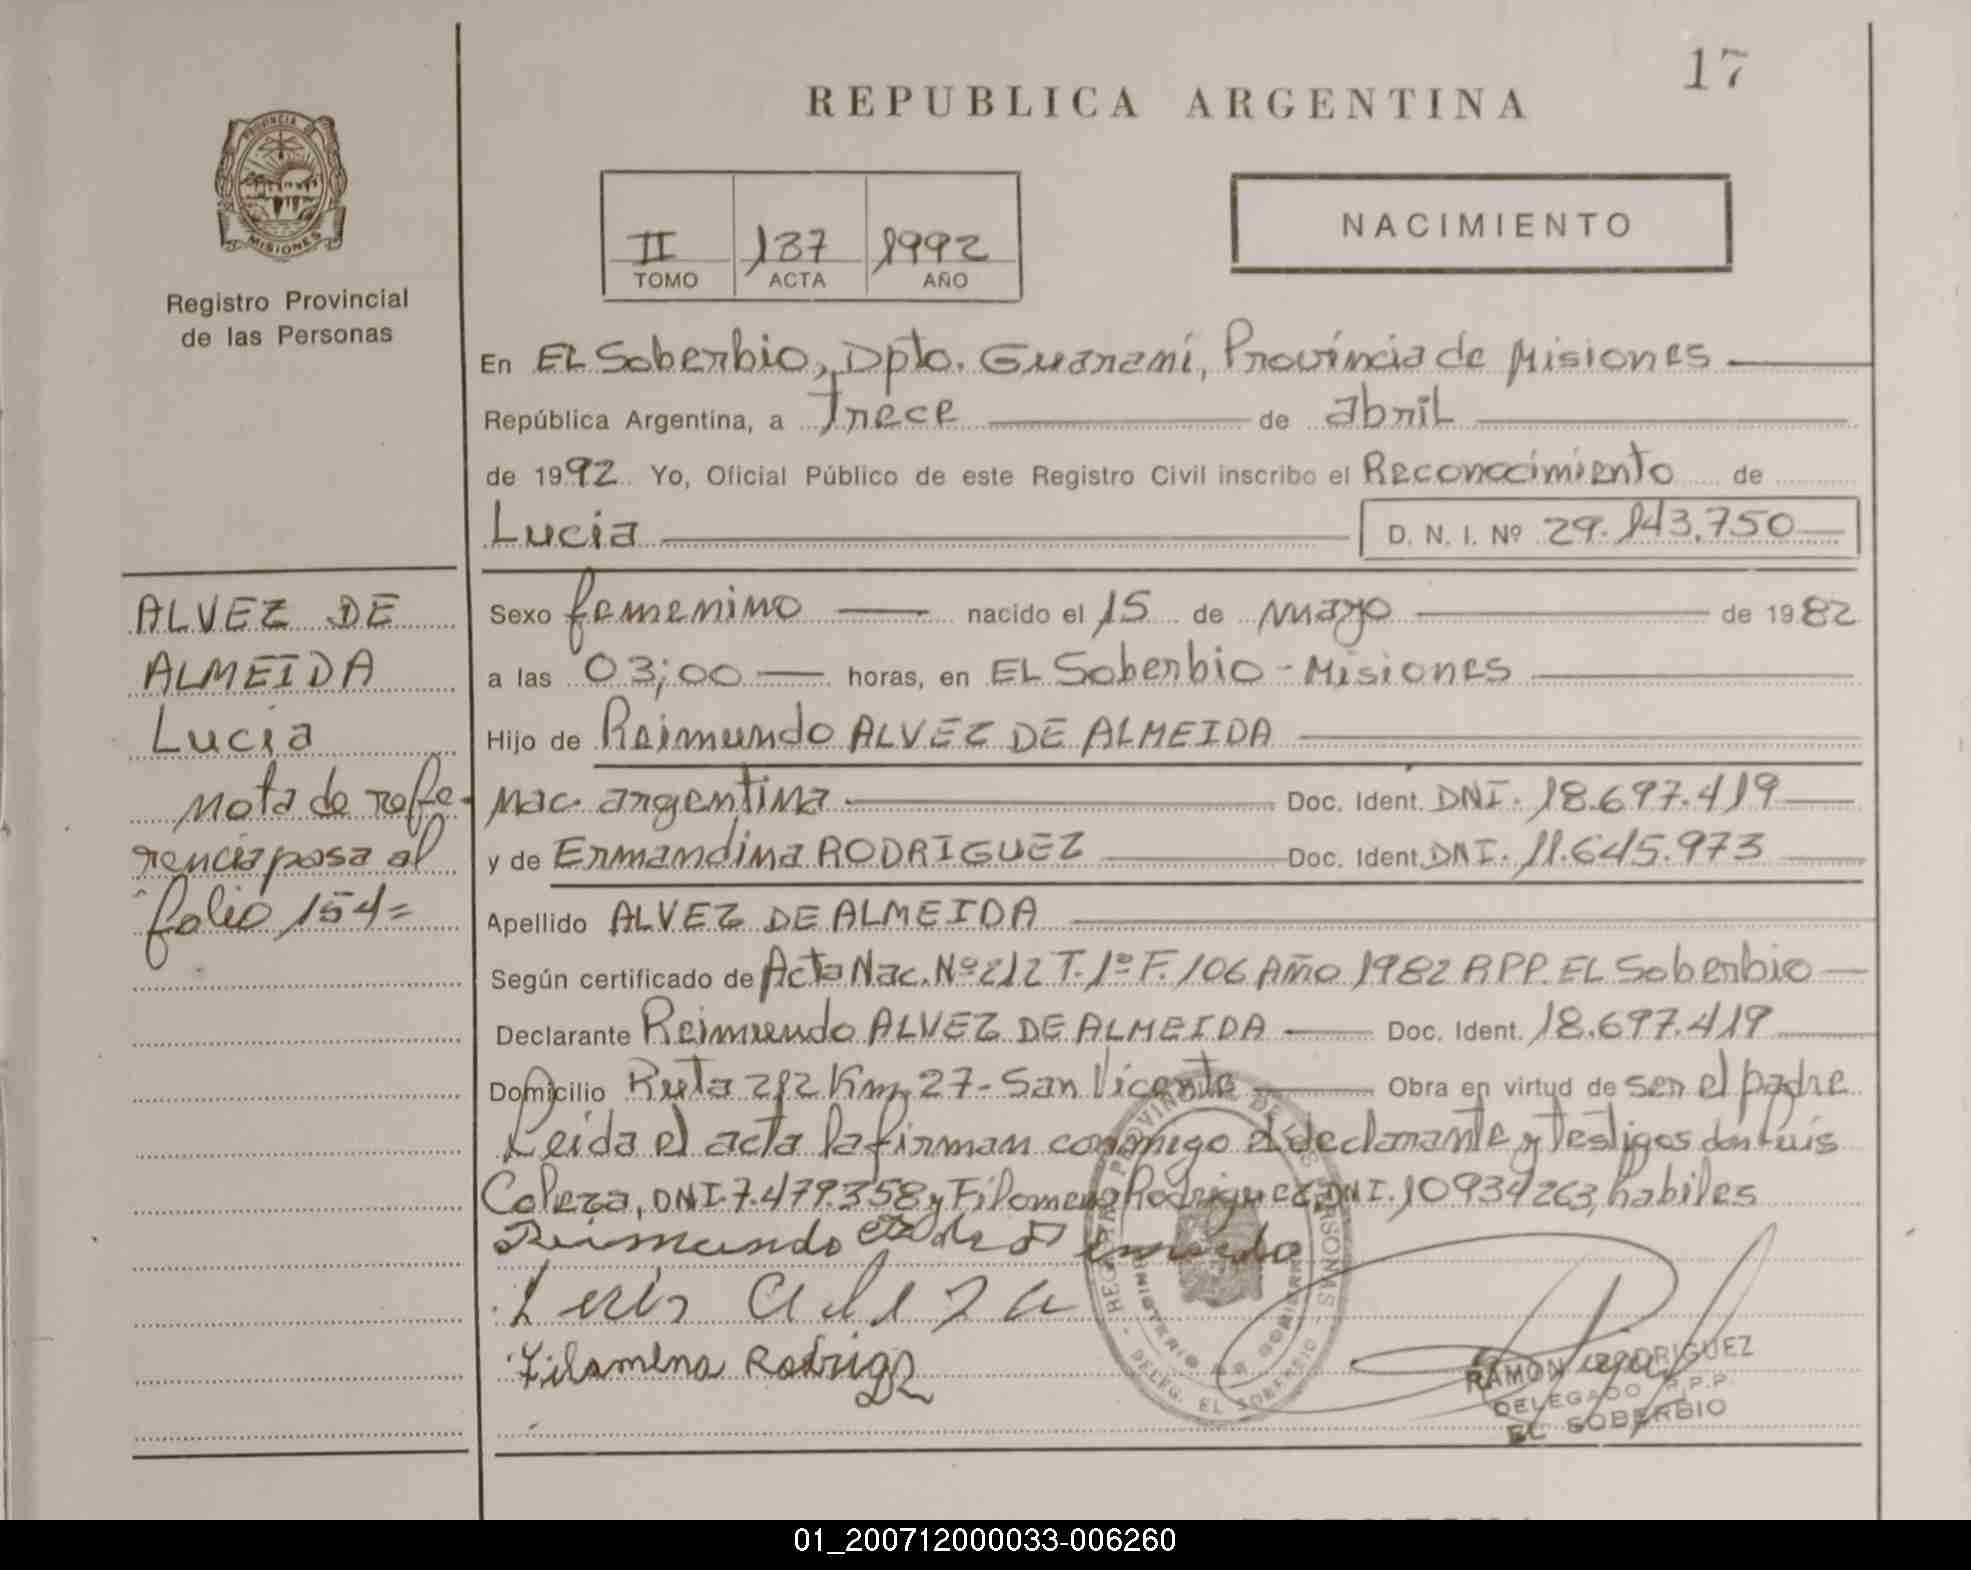 17
REPUBLICA ARGENTINA
PROVINCIA DE
MISIONES
Registro Provincial
de las Personas
II 137 1992
TOMO ACTA AÑO
NACIMIENTO
En EL Soberbio, Dpto. Guarani, Provincia de Misiones
República Argentina, a Trece de abril
de 1992 Yo, Oficial Público de este Registro Civil inscribo el Reconocimiento de
Lucia D. N. I. Nº 29.143.750
ALVEZ DE
ALMEIDA
Lucia
nota de refe-
rencia pasa al
folio 154=
Sexo femenino nacido el 15 de mayo de 1982
a las 03;00 horas, en EL Soberbio - Misiones
Hijo de Reimundo ALVEZ DE ALMEIDA
Nac. argentina Doc. Ident. DNI. 18.697.419
y de Ermandina RODRIGUEZ Doc. Ident. DNI. 11.645.973
Apellido ALVEZ DE ALMEIDA
Según certificado de Acta Nac. Nº 212 T. 1º F. 106 Año 1982 RPP. EL Soberbio
Declarante Reimundo ALVEZ DE ALMEIDA Doc. Ident. 18.697.419
Domicilio Ruta 212 Km. 27 - San Vicente Obra en virtud de ser el padre
Leida el acta la firman conmigo el declarante y testigos don Luis
Coleza, DNI. 7.479.358 y Filomena Rodriguez, DNI. 10934263, habiles
Reimundo
Luis
Filomena
REGISTRO PROVINCIAL DE LAS PERSONAS
MINISTERIO DE GOBIERNO
DELEG. EL SOBERBIO
RAMON RODRIGUEZ
DELEGADO R.P.P.
EL SOBERBIO
01_200712000033-006260